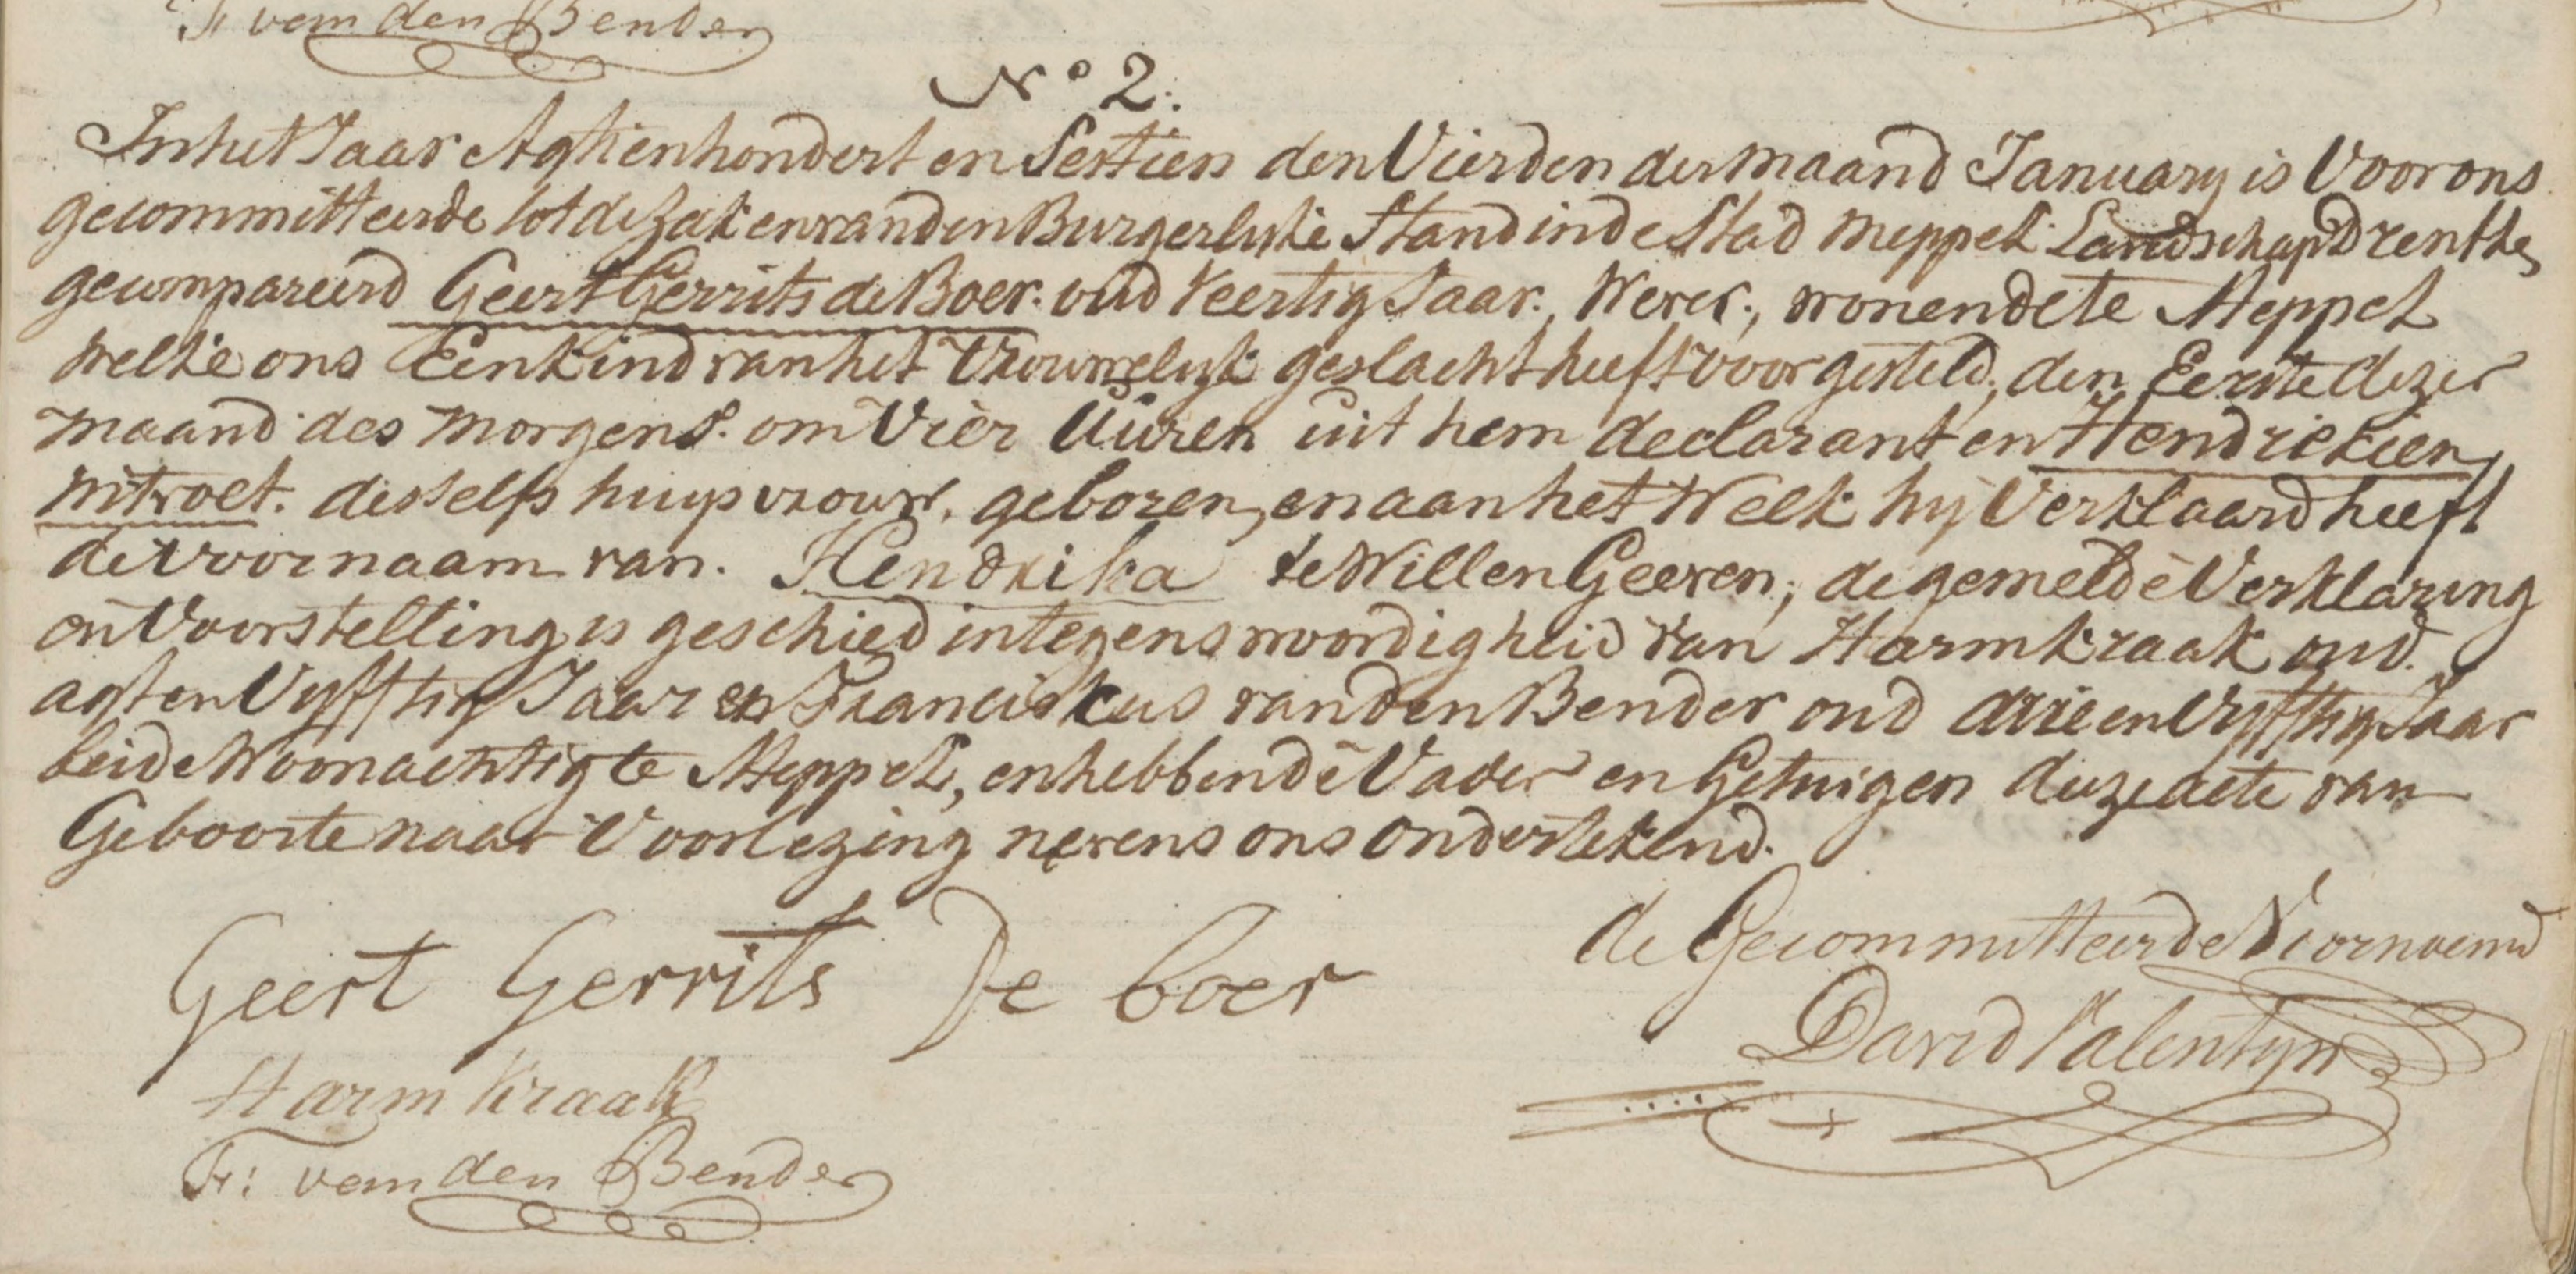 Fr vanden Bender
No 2.
In het Jaar Agtienhondert en Sestien den Vierden der maand January is Voor ons
gecommitteerde tot de Zaken van den Burgerlyke Stand in de Stad Meppel Landschap Drenthe,
gecompareerd Geert Gerrits de Boer. oud Veertig Jaar., Wever., wonende te Meppel
welke ons Een kind van het Vrouwelyk geslacht heeft voorgesteld, den Eerste dezer
maand des morgens. om Vier Uuren uit hem declarant en Hendrickien
Witvoet. desselfs huysvrouw, geboren, en aan het Welk hy Verklaard heeft
de voornaam van. Hendrika te Willen Geeven; de gemelde Verklaring
en Voorstelling is geschied in tegenswoordigheid van Harm Kraak oud
agt en Vyfftig Jaar en Franciskus van den Bender oud drie en Vyfftig Jaar
beide Woonachtig te Meppel, en hebben de Vader en Getuigen deeze acte van
Geboorte naar Voorlezing nevens ons ondertekend.
de Gecommitteerde Voornoemd
Geert Gerrits De boer
David Valentyn
Harm Kraak
Fr: vanden Bender